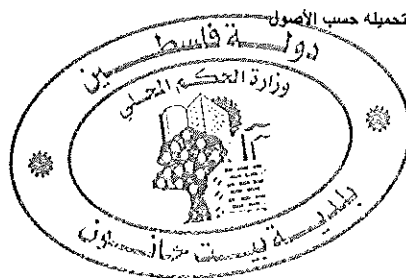 تحميله حسب الأصول
دولة فلسطين
وزارة الحكم المحلي
بلدية بيت حانون